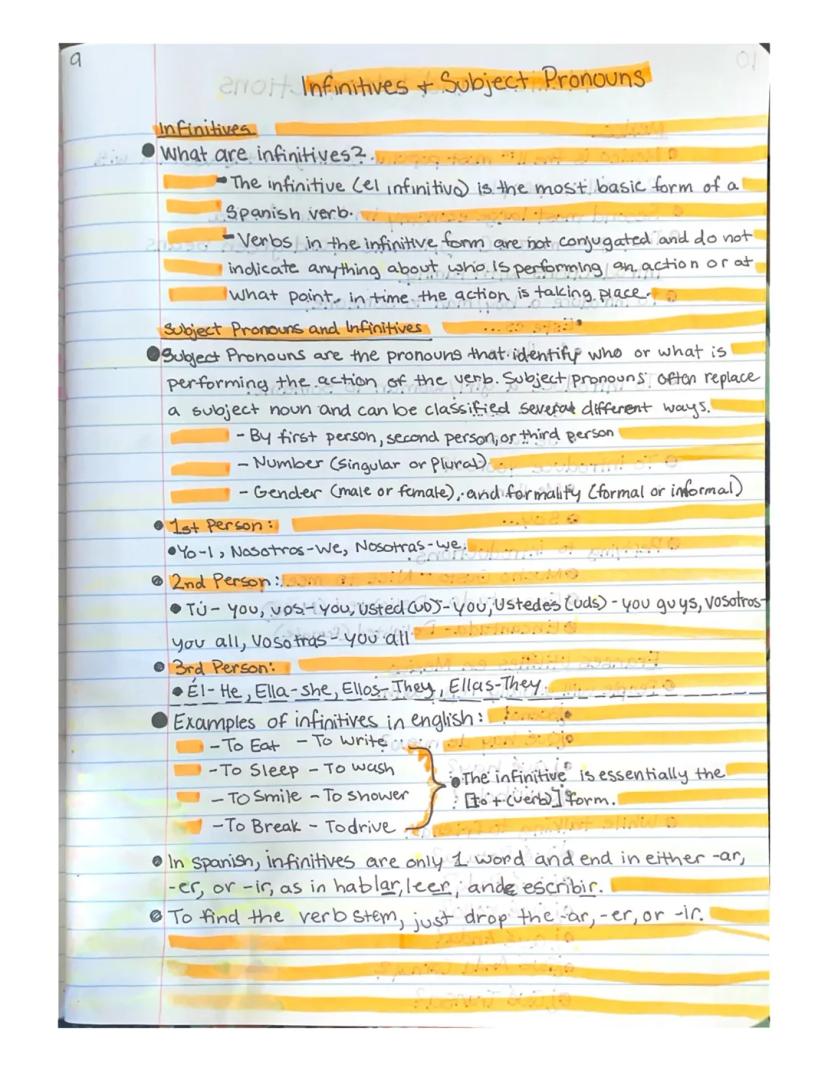 9
Infinitives + Subject Pronouns
Infinitives
• What are infinitives?
- The infinitive (el infinitivo) is the most basic form of a
Spanish verb.
- Verbs in the infinitive form are not conjugated and do not
indicate anything about who is performing an action or at
what point in time the action is taking place.
Subject Pronouns and Infinitives
• Subject Pronouns are the pronouns that identify who or what is
performing the action of the verb. Subject pronouns often replace
a subject noun and can be classified several different ways.
- By first person, second person, or third person
- Number (singular or Plural)
- Gender (male or female), and formality (formal or informal)
• 1st Person:
• Yo-I, Nosotros-we, Nosotras-we.
• 2nd Person:
• Tú- you, vos- you, usted (UD)- you, Ustedes (uds) - you guys, Vosotros-
you all, Vosotras- you all
• 3rd Person:
• Él- He, Ella-she, Ellos- They, Ellas-They
• Examples of infinitives in english:
- To Eat - To write
- To Sleep - To wash
- To Smile - To shower
- To Break - To drive
• The infinitive is essentially the
[to + (verb)] form.
• In spanish, infinitives are only 1 word and end in either -ar,
-er, or -ir, as in hablar, leer, and escribir.
• To find the verb stem, just drop the -ar, -er, or -ir.